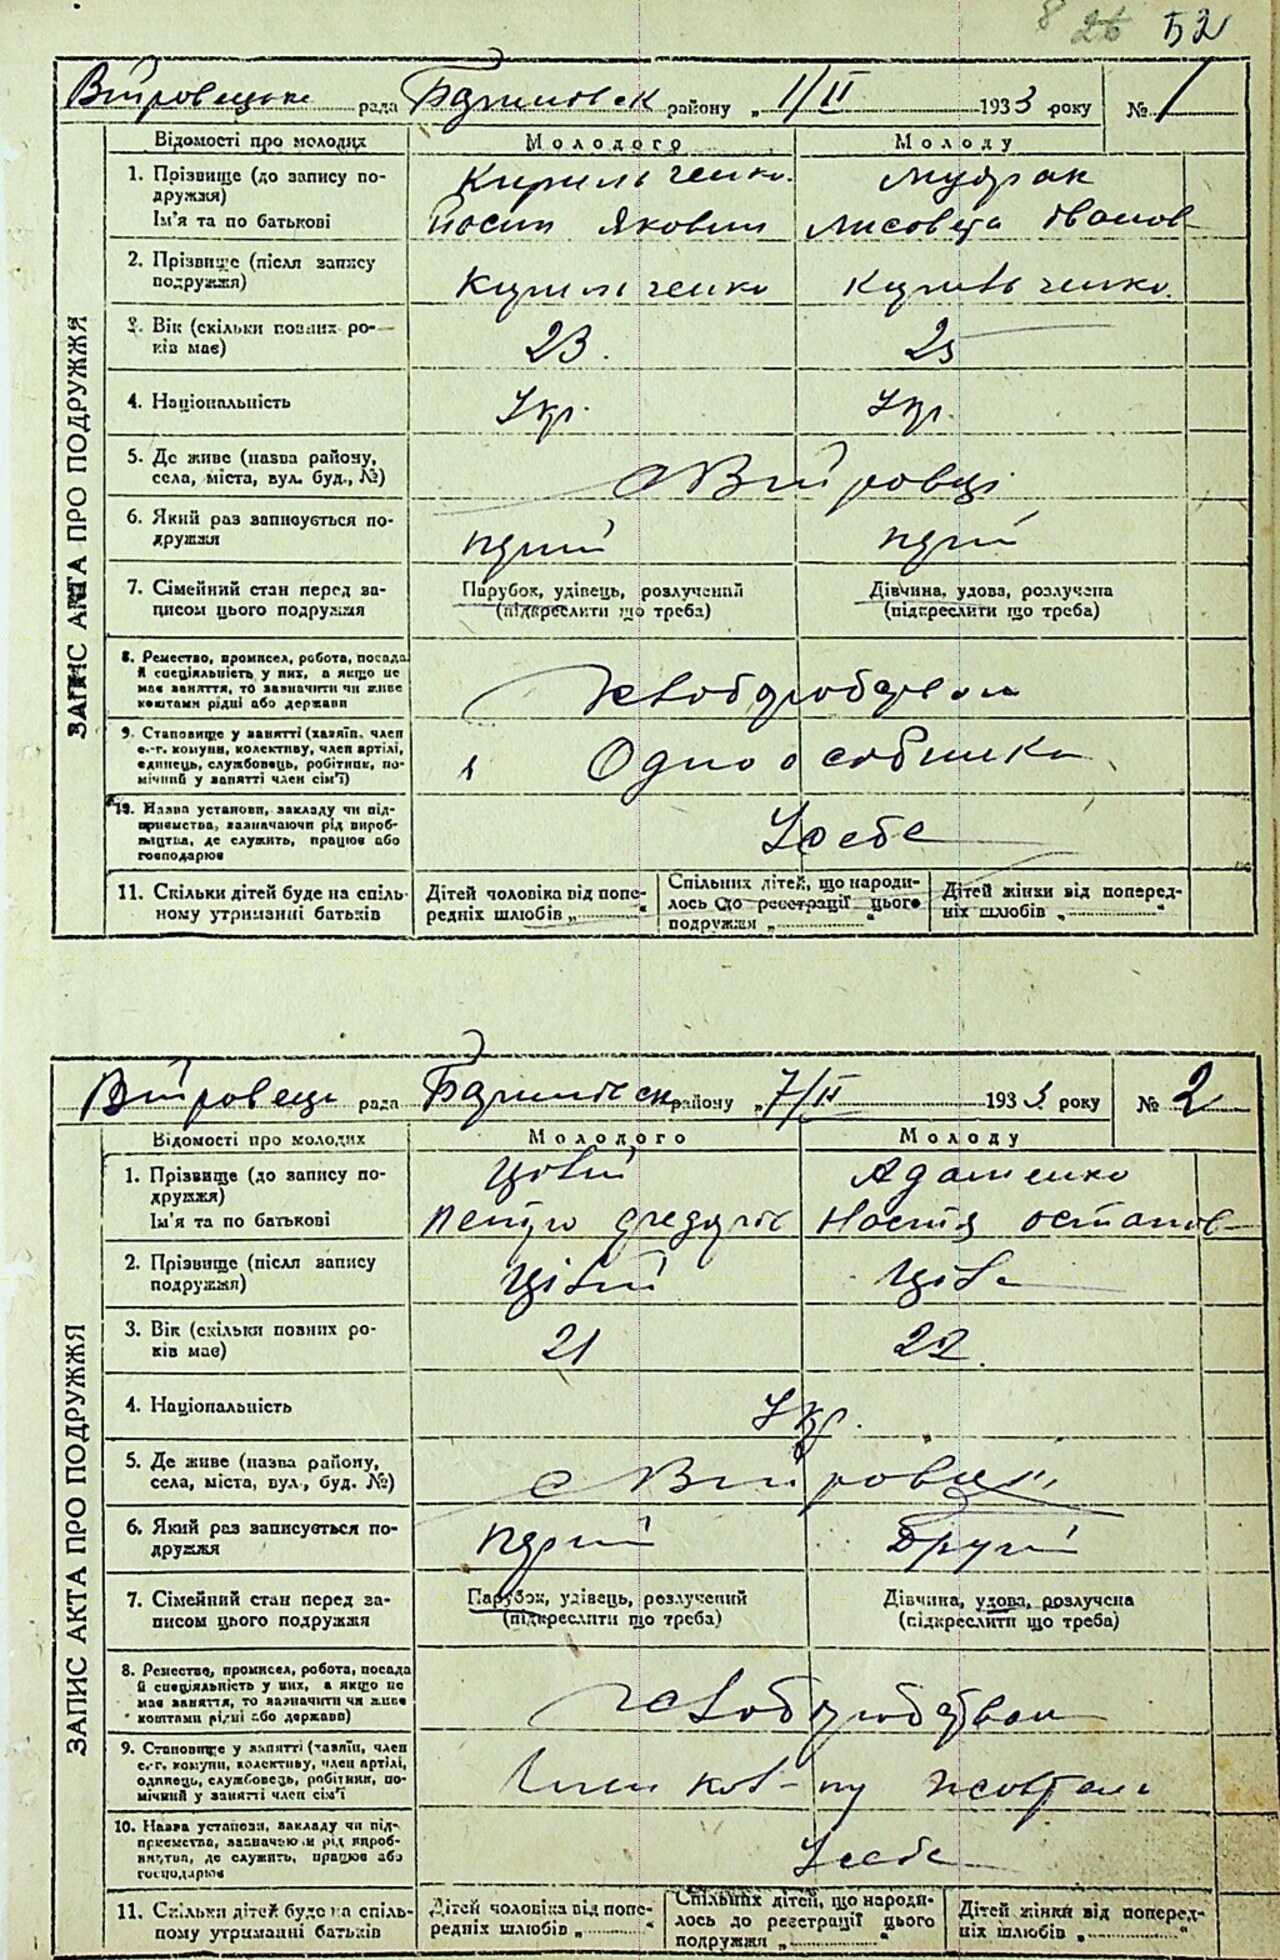 8 26 52
Війровецька рада району „1/II 1933 року № 1
Відомості про молодих Молодого Молоду
ЗАПИС АКТА ПРО ПОДРУЖЖЯ
1. Прізвище (до запису по-
дружжя)
Кирильченко. Мудрак
Ім'я та по батькові Йосип Якович Лисовета Іванов
2. Прізвище (після запису
подружжя)
Кирильченко Кирильченко.
3. Вік (скільки повних ро-
ків має)
23. 25
4. Національність Укр. Укр.
5. Де живе (назва району,
села, міста, вул. буд., №)
с Війровці
6. Який раз записується по-
дружжя
7. Сімейний стан перед за-
писом цього подружжя
Парубок, удівець, розлучений
(підкреслити що треба)
Дівчина, удова, розлучена
(підкреслити що треба)
8. Ремество, промисел, робота, посада
й спеціяльність у них, а якщо не
має заняття, то зазначити чи живе
коштами рідні або держави
Хліборобство
9. Становище у занятті (хазяїн, член
с.-г. комуни, колективу, член артілі,
одинець, службовець, робітник, по-
мічний у занятті член сім'ї)
Одноосібники
10. Назва установи, закладу чи під-
приємства, зазначаючи рід вироб-
ництва, де служить, працює або
господарює
У себе
11. Скільки дітей буде на спіль-
ному утриманні батьків
Дітей чоловіка від попе-
редніх шлюбів „ “
Спільних дітей, що народи-
лось до реєстрації цього
подружжя „ “
Дітей жінки від поперед-
ніх шлюбів „ “
Війровець рада району „7/II 1933 року № 2
Відомості про молодих Молодого Молоду
ЗАПИС АКТА ПРО ПОДРУЖЖЯ
1. Прізвище (до запису по-
дружжя)
Цівий Адаменко
Ім'я та по батькові Петро Настя Остапов
2. Прізвище (після запису
подружжя)
Цівий Ціва
3. Вік (скільки повних ро-
ків має)
21 22.
4. Національність Укр.
5. Де живе (назва району,
села, міста, вул., буд. №)
с Війровці
6. Який раз записується по-
дружжя
Другий
7. Сімейний стан перед за-
писом цього подружжя
Парубок, удівець, розлучений
(підкреслити що треба)
Дівчина, удова, розлучена
(підкреслити що треба)
8. Ремество, промисел, робота, посада
й спеціяльність у них, а якщо не
має заняття, то зазначити чи живе
коштами рідні або держави)
Хліборобство
9. Становище у занятті (хазяїн, член
с.-г. комуни, колективу, член артілі,
одинець, службовець, робітник, по-
мічний у занятті член сім'ї
Член кол-пу
10. Назва установи, закладу чи під-
приємства, зазначаючи рід вироб-
ництва, де служить, працює або
господарює
У себе
11. Скільки дітей буде на спіль-
ному утриманні батьків
Дітей чоловіка від попе-
редніх шлюбів „ “
Спільних дітей, що народи-
лось до реєстрації цього
подружжя „ “
Дітей жінки від поперед-
ніх шлюбів „ “